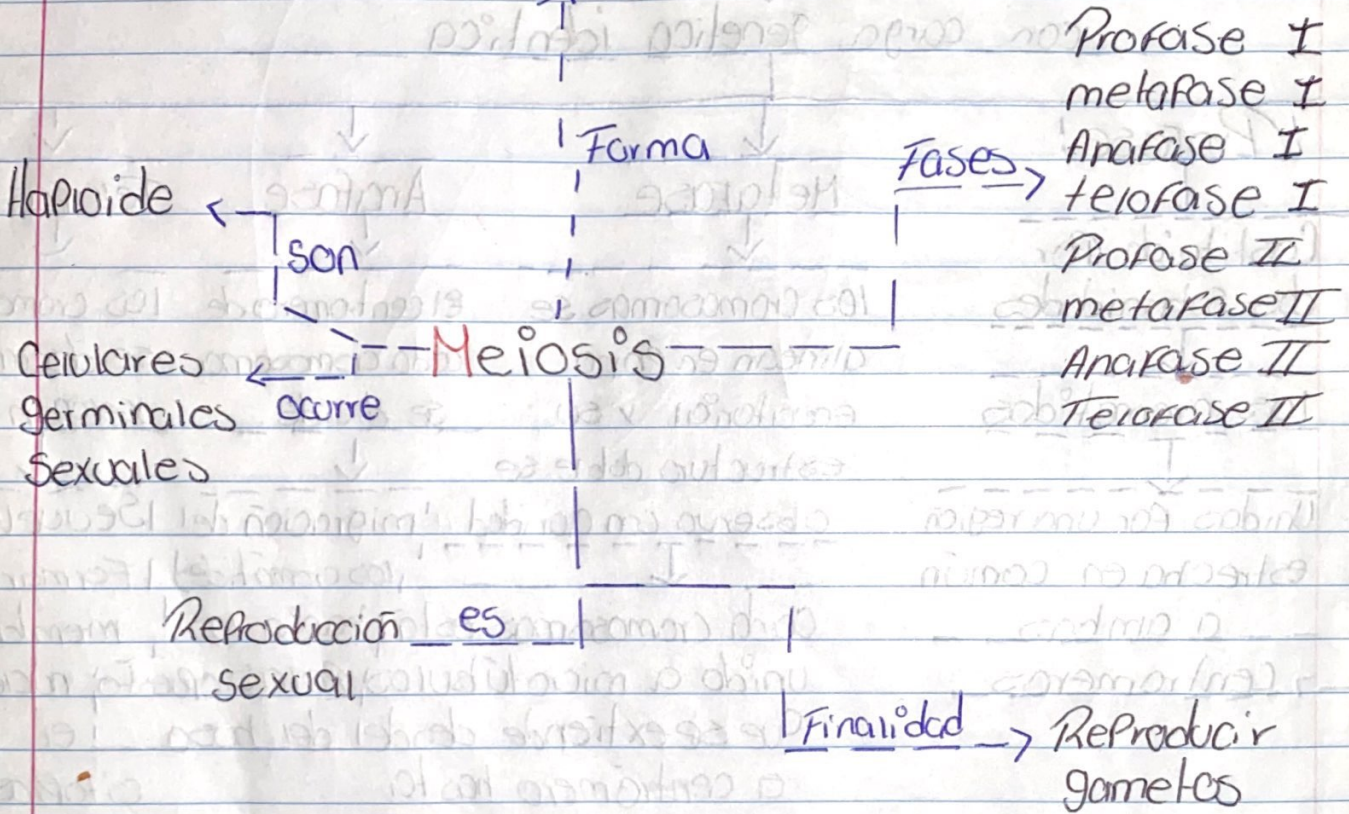 Profase I
metafase I
Anafase I
telofase I
Profase II
metafase II
Anafase II
Telofase II
Forma
Fases
Haploide
son
Meiosis
Celulares
germinales
sexuales
ocurre
Reproducción
sexual
es
Finalidad
Reproducir
gametos